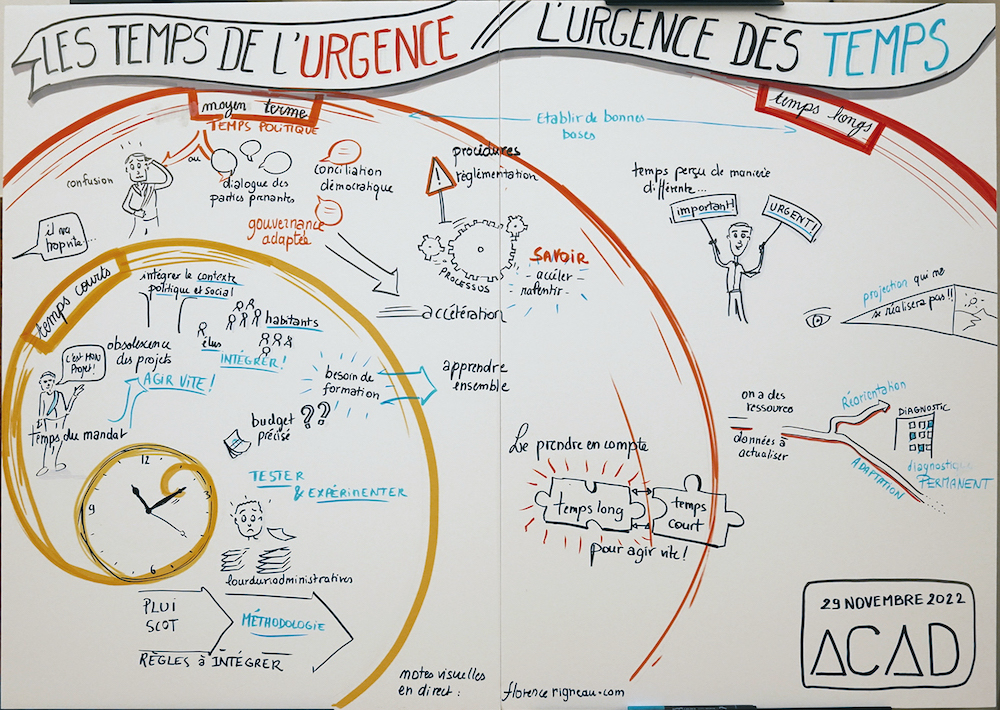 LES TEMPS DE L'URGENCE // L'URGENCE DES TEMPS
moyen terme
TEMPS POLITIQUE
Etablir de bonnes
bases
temps longs
confusion
ou
dialogue des
parties prenantes
conciliation
démocratique
gouvernance
adaptée
procédures
règlémentation
PROCESSUS
SAVOIR
accéler
ralentir
accélération
temps perçu de manière
différente...
important!
URGENT!
projection qui ne
se réalisera pas!!
il va
trop vite...
temps courts
intégrer le contexte
politique et social
habitants
élus
INTÉGRER!
obsolescence
des projets
AGIR VITE!
C'est MON
Projet!
temps du mandat
besoin de
formation
apprendre
ensemble
budget ??
précisé
TESTER
& EXPÉRIMENTER
12
3
6
9
lourdeurs administratives
PLUI
SCOT
MÉTHODOLOGIE
RÈGLES à INTÉGRER
Le prendre en compte
temps long
temps
court
pour agir vite!
on a des
ressources
données à
actualiser
Réorientation
ADAPTATION
DIAGNOSTIC
diagnostic
PERMANENT
29 NOVEMBRE 2022
ACAD
notes visuelles
en direct : florencerigneau.com